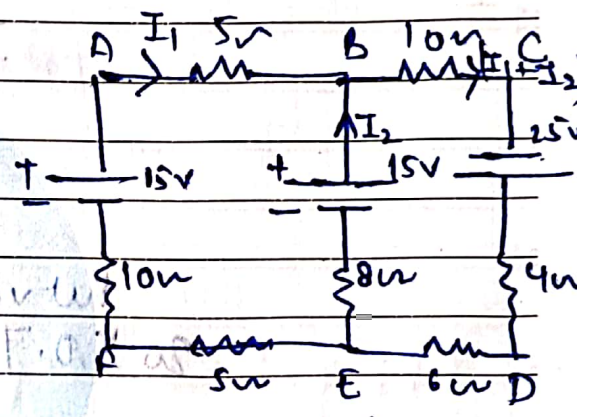 I₁ 5Ω 10Ω
A B C
I₁+I₂
I₂ 25V
+ 15V + 15V
- -
10Ω 8Ω 4Ω
F
5Ω E 6Ω D